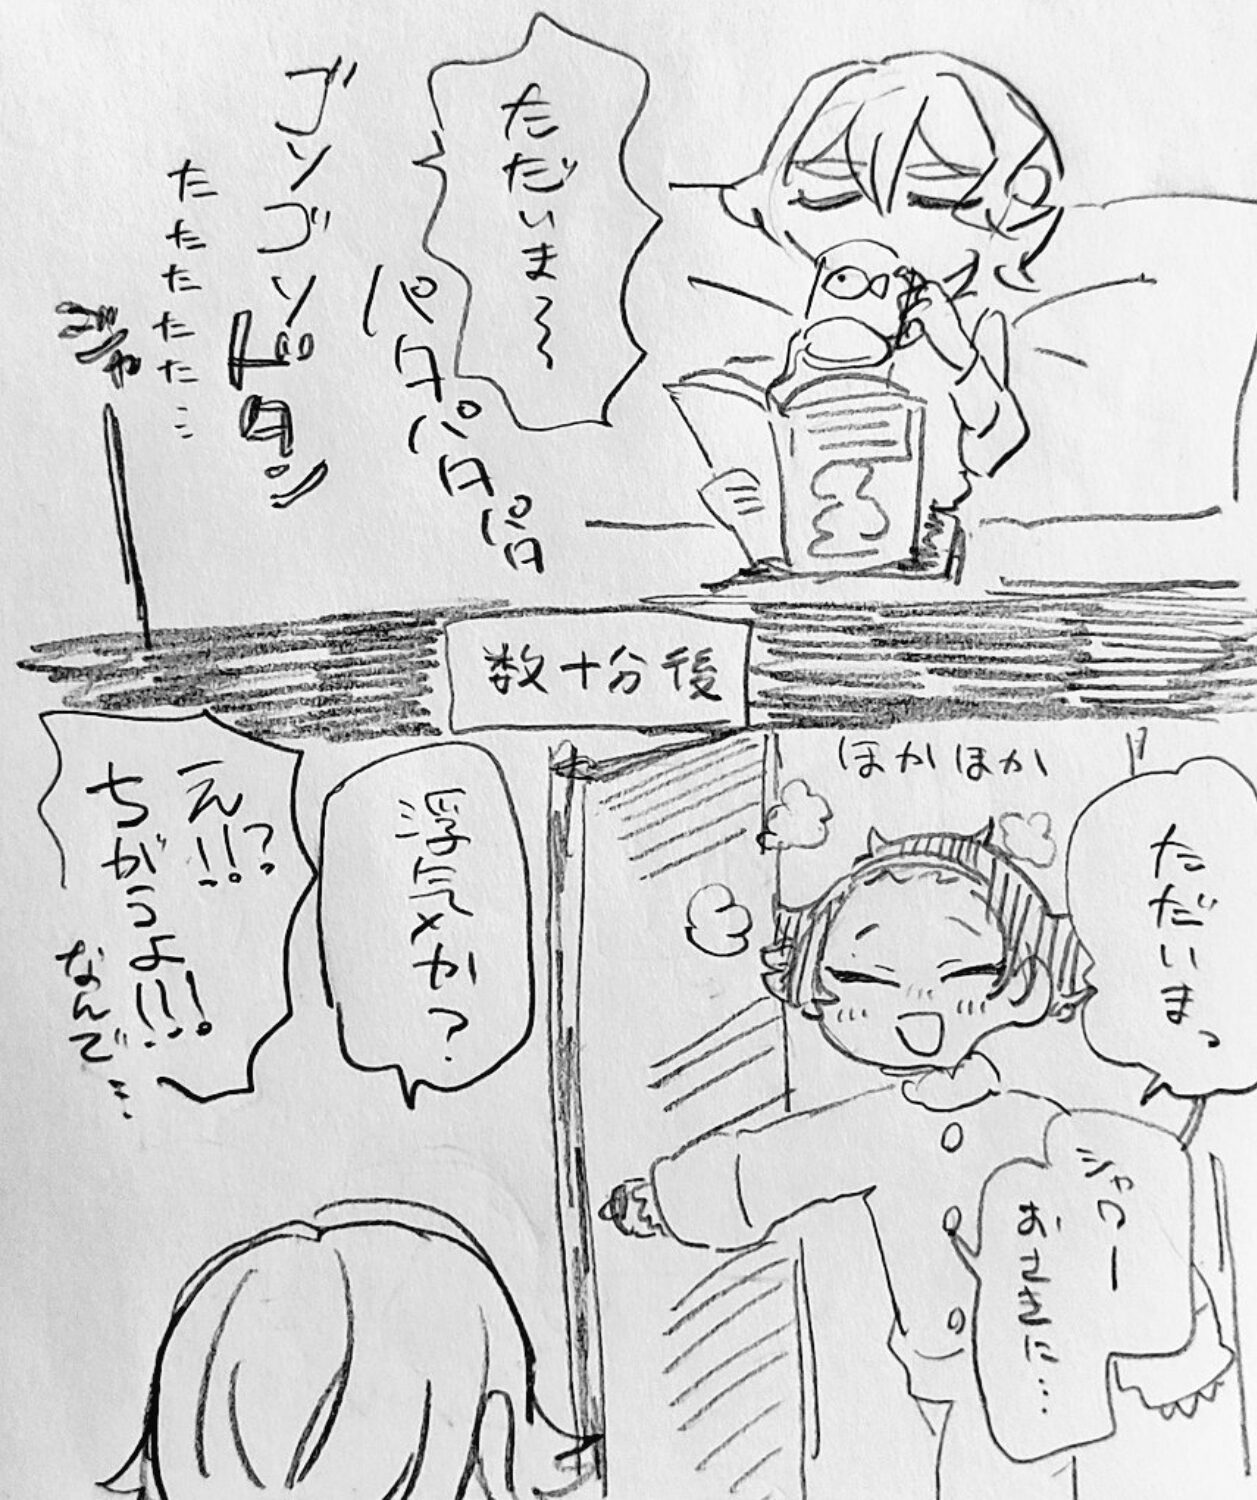 ただいま〜〜
パタパタパタ
ゴソゴソ
ドタン
たたたたた…
ジャー
数十分後
ほかほか
ただいまっ
シャワー
おさきに…
浮気か?
え!!?
ちがうよ!!!
なんで…